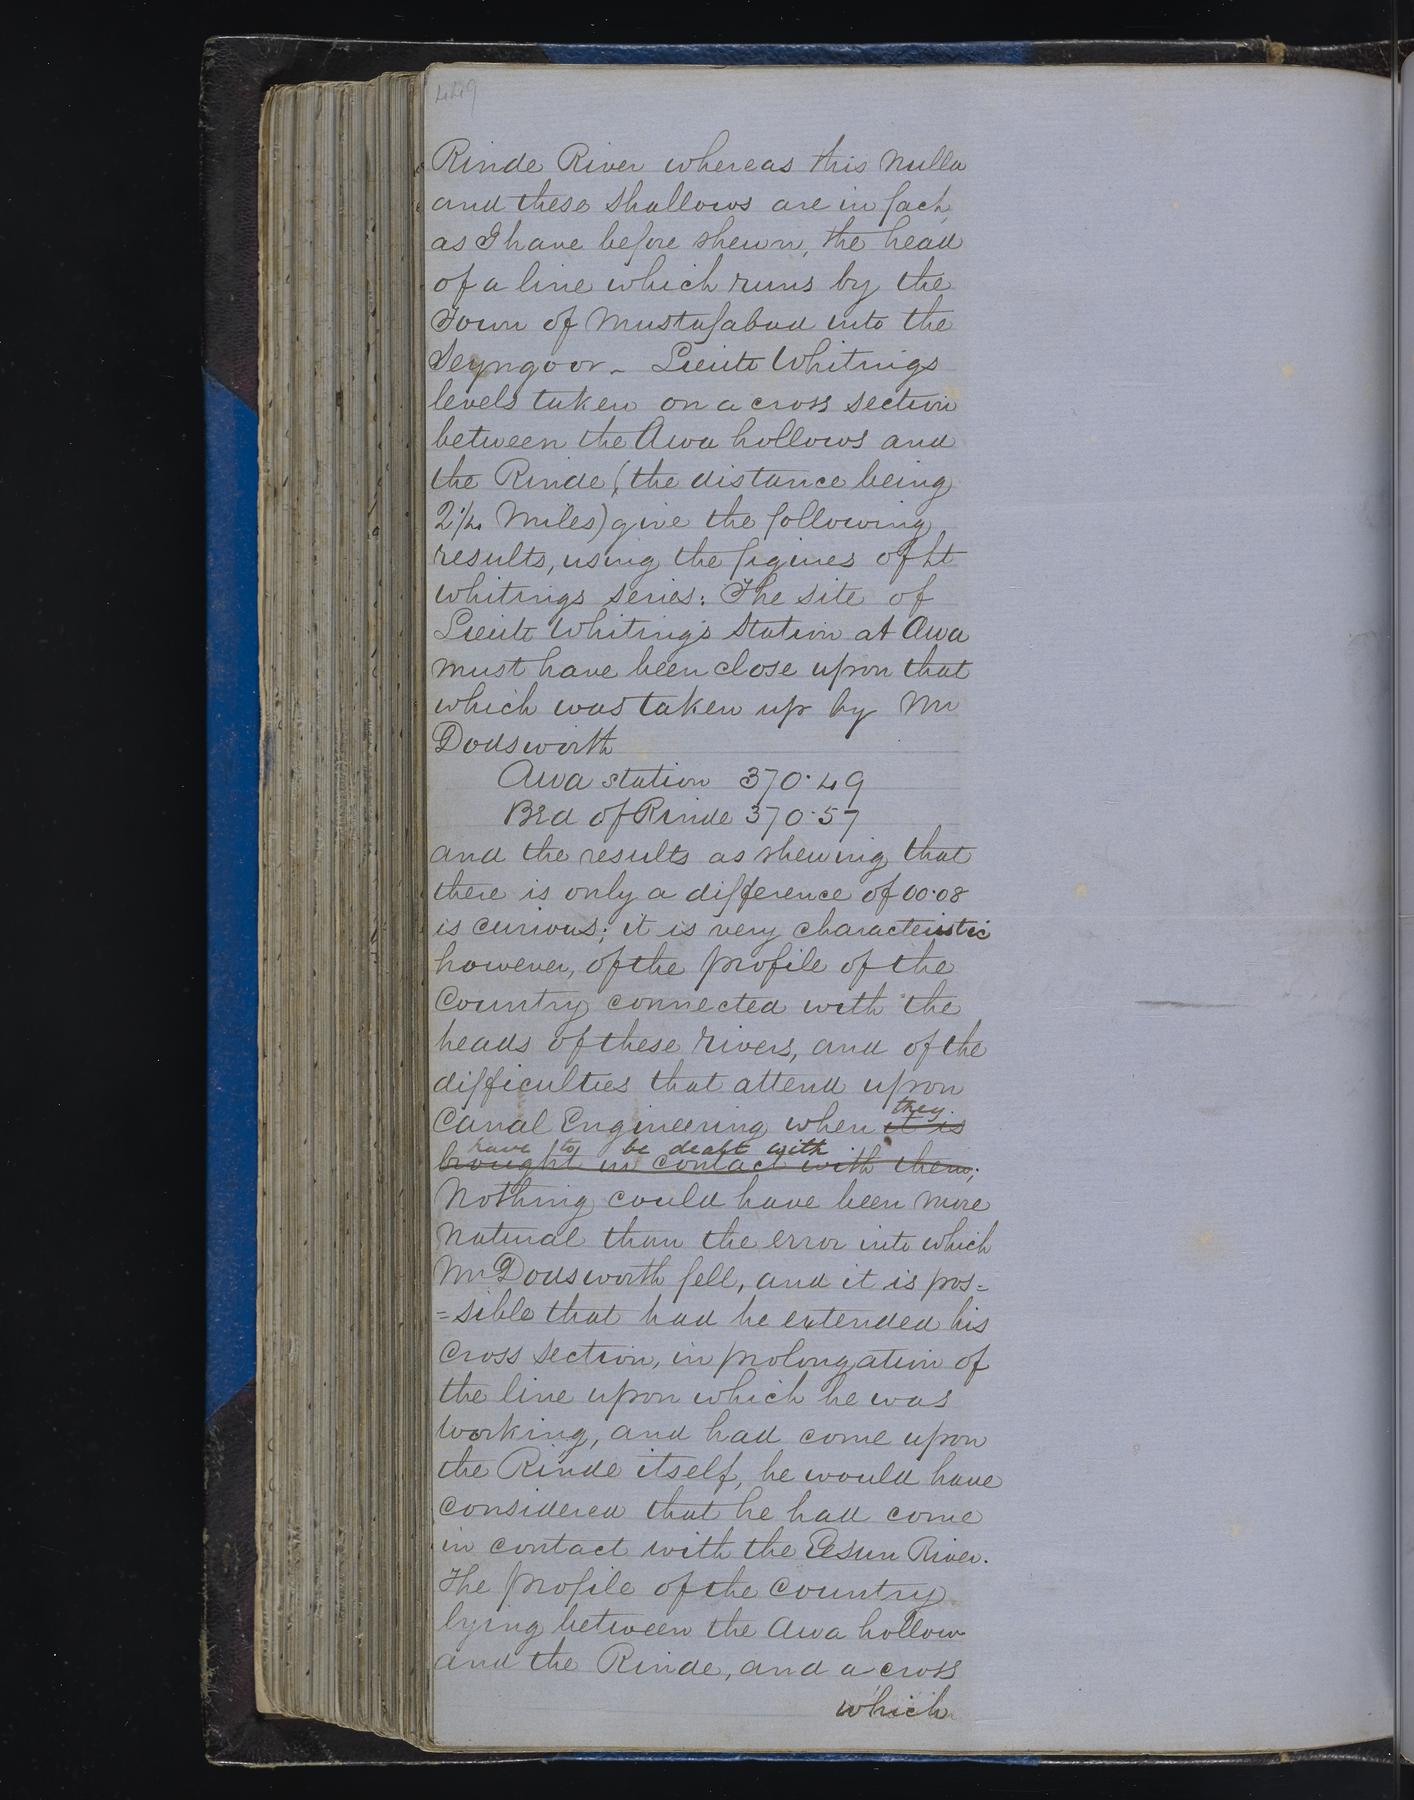 449
Rinde River whereas this Nulla
and these shallows are in fact,
as I have before shewn, the head
of a line which runs by the
Town of Mustafabad into the
Seyngoor - Lieutt Whitings
levels taken on a cross section
between the Awa hollows and
the Rinde (the distance being
2 1/2 Miles) give the following
results, using the figures of Lt
Whitings series: The site of
Lieutt Whiting's Station at Awa
must have been close upon that
which was taken up by Mr
Dodsworth
Awa station 370.49
Bed of Rinde 370.57
and the results as shewing that
there is only a difference of 00.08
is curious; it is very characteristic
however, of the profile of the
Country connected with the
heads of these rivers, and of the
difficulties that attend upon
they
Canal Engineering when it is
have to be dealt with
brought in contact with them;
Nothing could have been more
natural than the error into which
Mr Dodsworth fell, and it is pos=
=sible that had he extended his
cross section, in prolongation of
the line upon which he was
working, and had come upon
the Rinde itself, he would have
considered that he had come
in contact with the Eesun River.
The profile of the country
lying between the Awa hollow
and the Rinde, and a cross
which